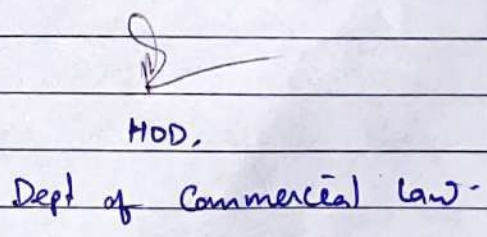 HOD,
Dept of Commercial Law-